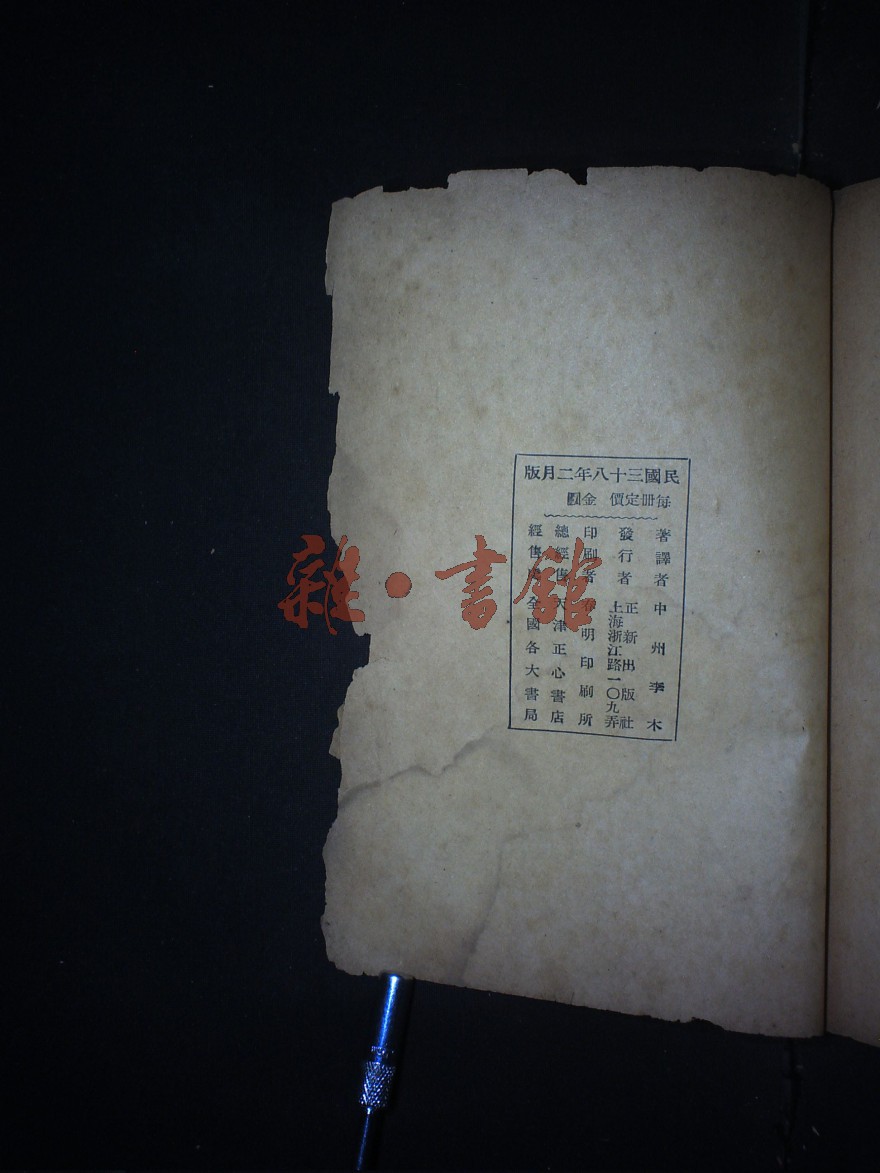 民國三十八年二月版
每冊定價 金圓
著譯者 中州李木
發行者 正新出版社
上海浙江路一〇九弄
印刷者 明印刷所
總經售 天津正心書店
經售處 全國各大書局
雜·書館